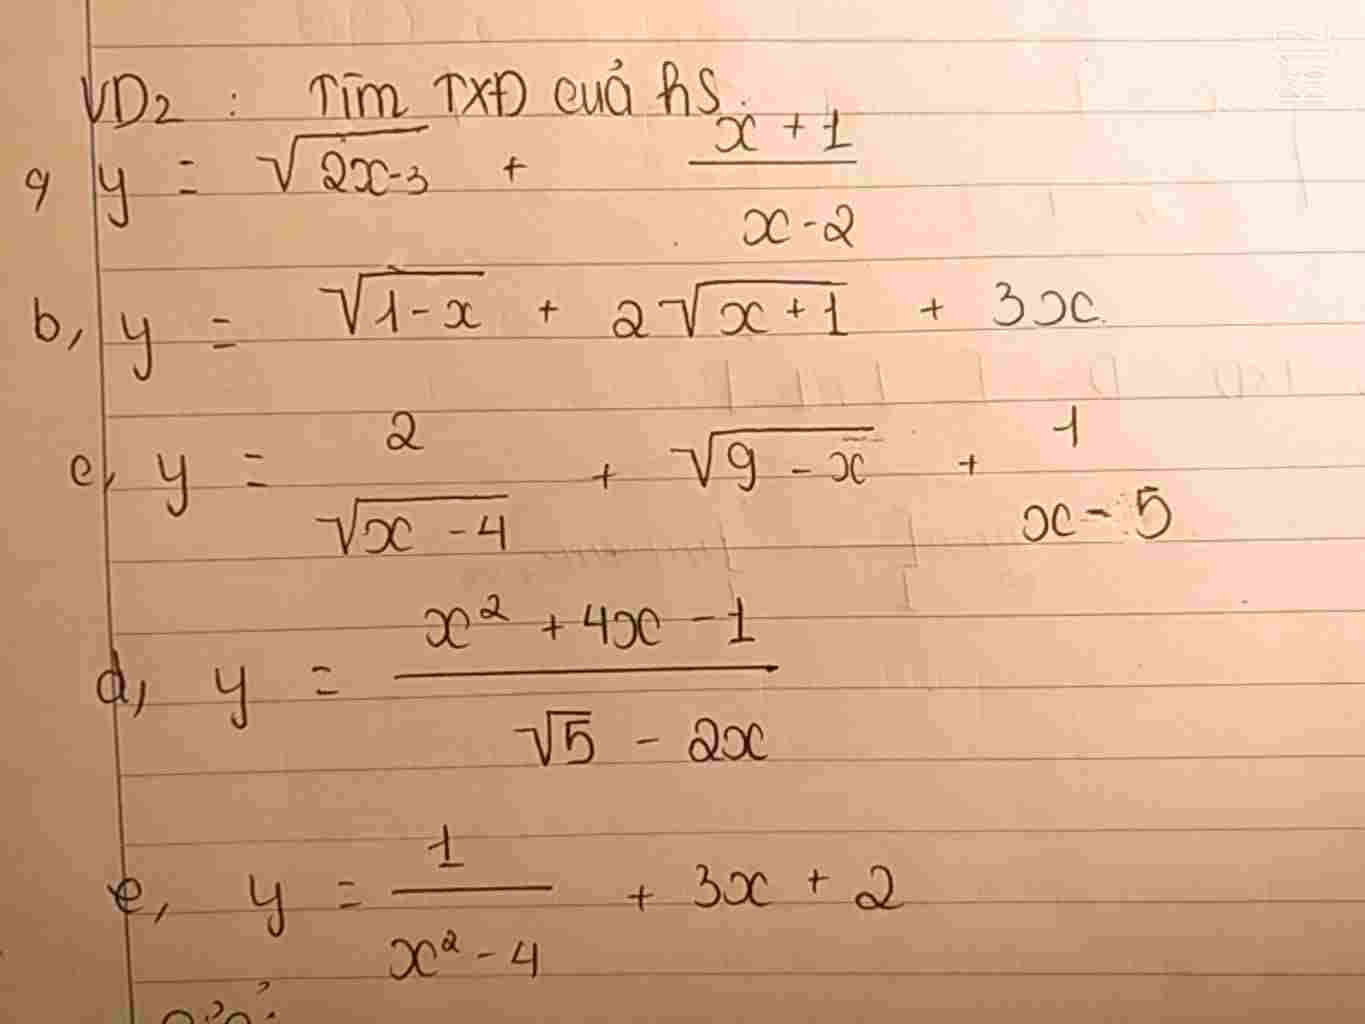 VD2 : Tìm TXĐ cuả hS.
a, y = √(2x-3) + (x + 1)/(x - 2)
b, y = √(1 - x) + 2√(x + 1) + 3x.
c, y = 2/√(x - 4) + √(9 - x) + 1/(x - 5)
d, y = (x² + 4x - 1)/(√5 - 2x)
e, y = 1/(x² - 4) + 3x + 2